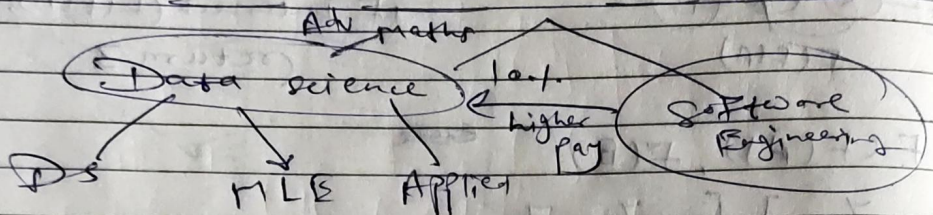 Adv maths
Data science
10%
higher
pay
Software
Engineering
DS
MLE
Applied